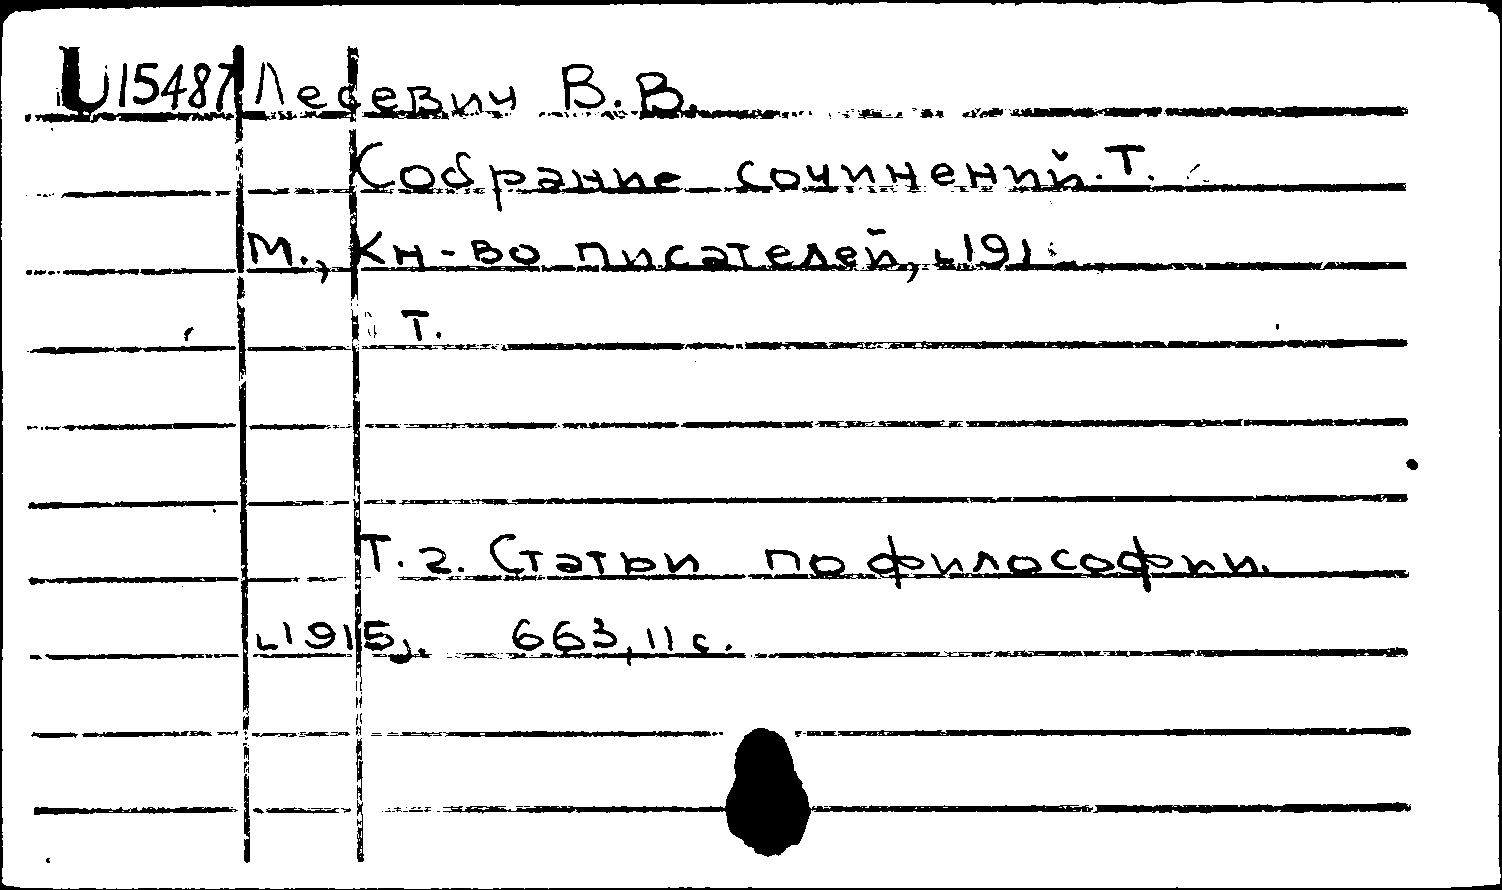 U15487 Лесевич В.В.
Собрание сочинений. Т.
М., Кн-во писателей, [191
т.
Т. 2. Статьи по философии.
[1915]. 663, 11 с.